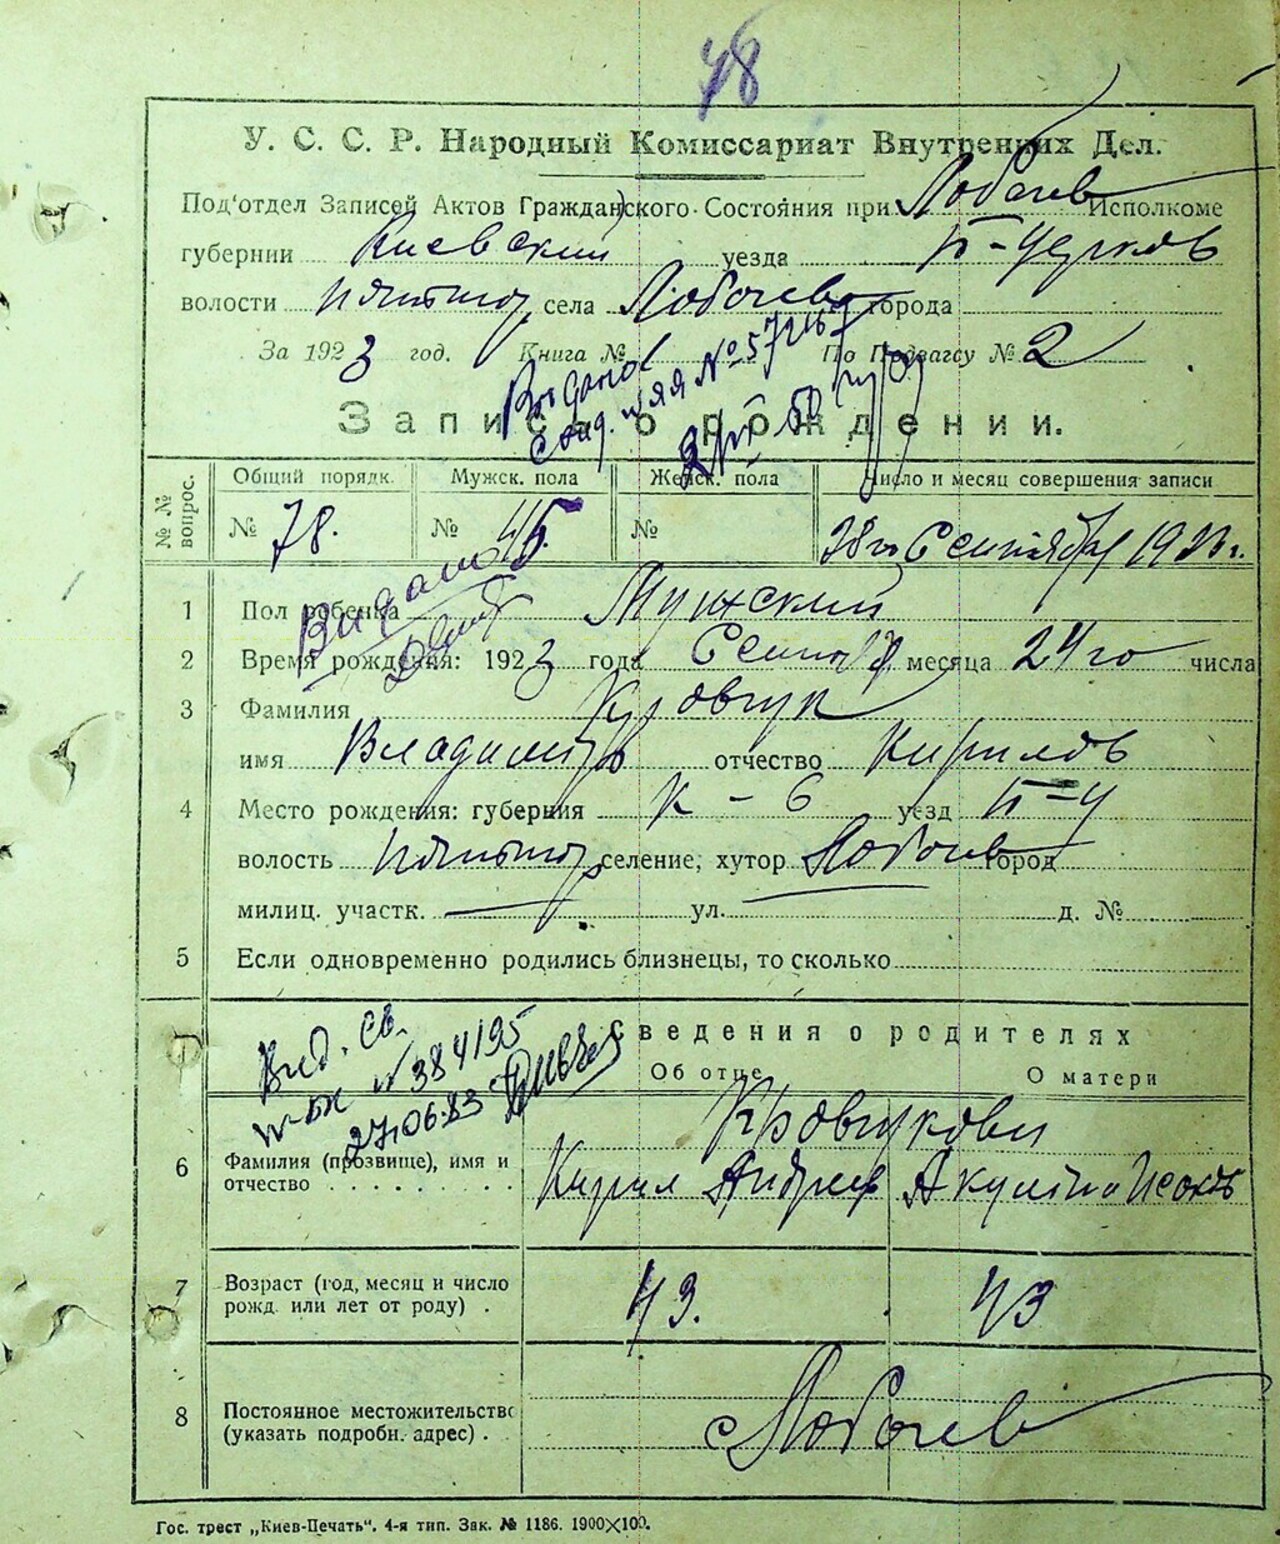 78
У. С. С. Р. Народный Комиссариат Внутренних Дел.
Под'отдел Записей Актов Гражданского Состояния при Лобачев Исполкоме
губернии Киевский уезда Б-Церков
волости села Лобачев города
За 1923 год. Книга № По Подзагсу № 2
Видано
Запись о рождении.
№ № вопрос. Общий порядк. Мужск. пола Женск. пола Число и месяц совершения записи
№ 78. № 45. № 28го Сентября 1923 г.
Видано
1 Пол ребенка Мужский
2 Время рождения: 1923 года Сентября месяца 24го числа
3 Фамилия Кравчук
имя Владимир отчество Кирилов
4 Место рождения: губерния К - уезд Б-Ц
волость селение, хутор Лобачев город
милиц. участк. — ул. д. №
5 Если одновременно родились близнецы, то сколько
Сведения о родителях
Вид. Св.
№384195
27.06.83
Об отце О матери
Кравчукови
6 Фамилия (прозвище), имя и отчество Кирил Андреев Акулина Исаков
7 Возраст (год, месяц и число рожд. или лет от роду) . 43. 43
8 Постоянное местожительство (указать подробн. адрес) . с Лобачев
Гос. трест „Киев-Печать". 4-я тип. Зак. № 1186. 1900×100.